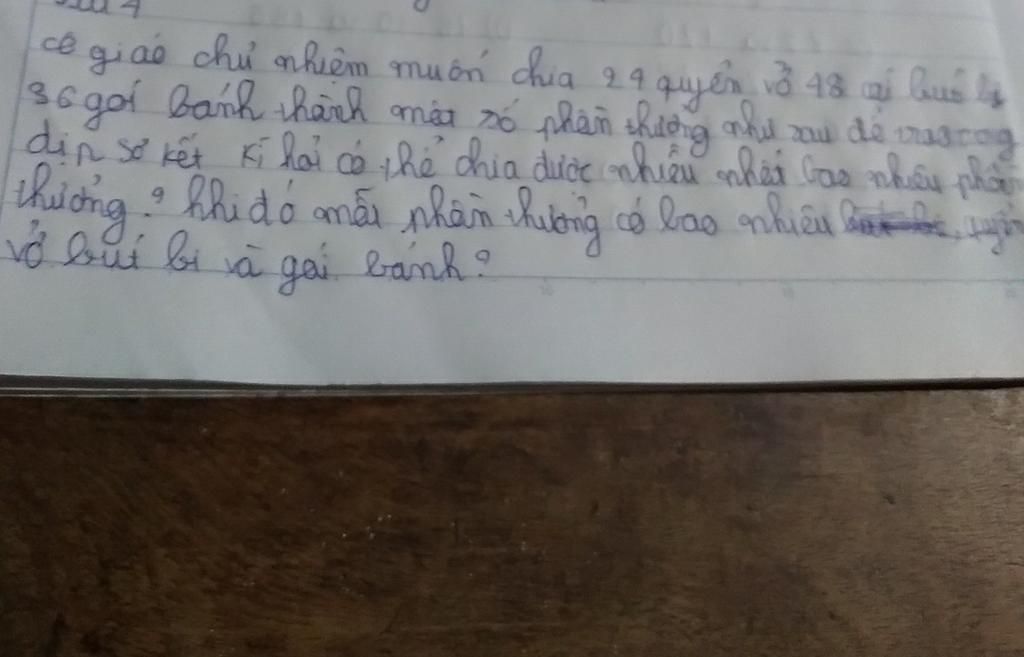 cô giáo chủ nhiệm muốn chia 24 quyển vở 48 cái bút bi
36 gói bánh thành một số phần thưởng như nhau để trao trong
dịp sơ kết kì hỏi có thể chia được nhiều nhất bao nhiêu phần
thưởng? khi đó mỗi phần thưởng có bao nhiêu quyển
vở bút bi và gói bánh?